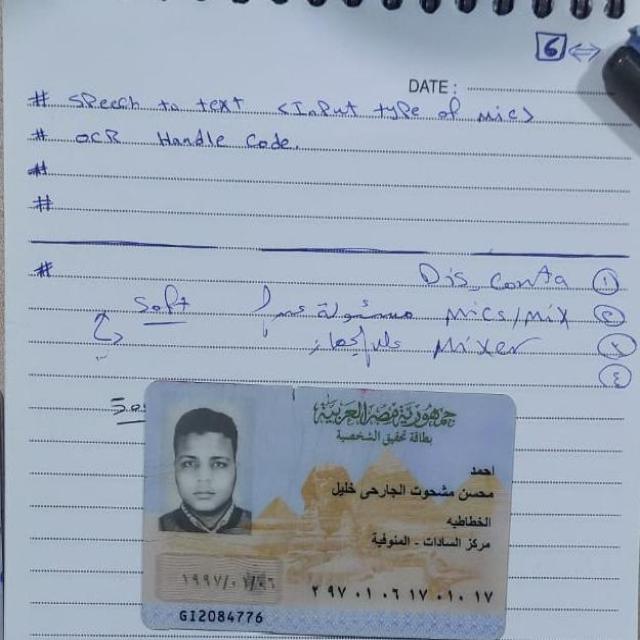 6
DATE :
# Speech to text <Input type of mic>
# OCR Handle Code.
#
#
# Dis_Conta ①
Soft Mics/Mix مسئولة ②
Mixer ③
④
جمهورية مصر العربية
بطاقة تحقيق الشخصية
احمد
محسن مشحوت الجارحى خليل
الخطاطيه
مركز السادات - المنوفية
٢ ٩٧ ٠١ ٠٦ ١٧ ٠١٠ ١٧
GI2084776